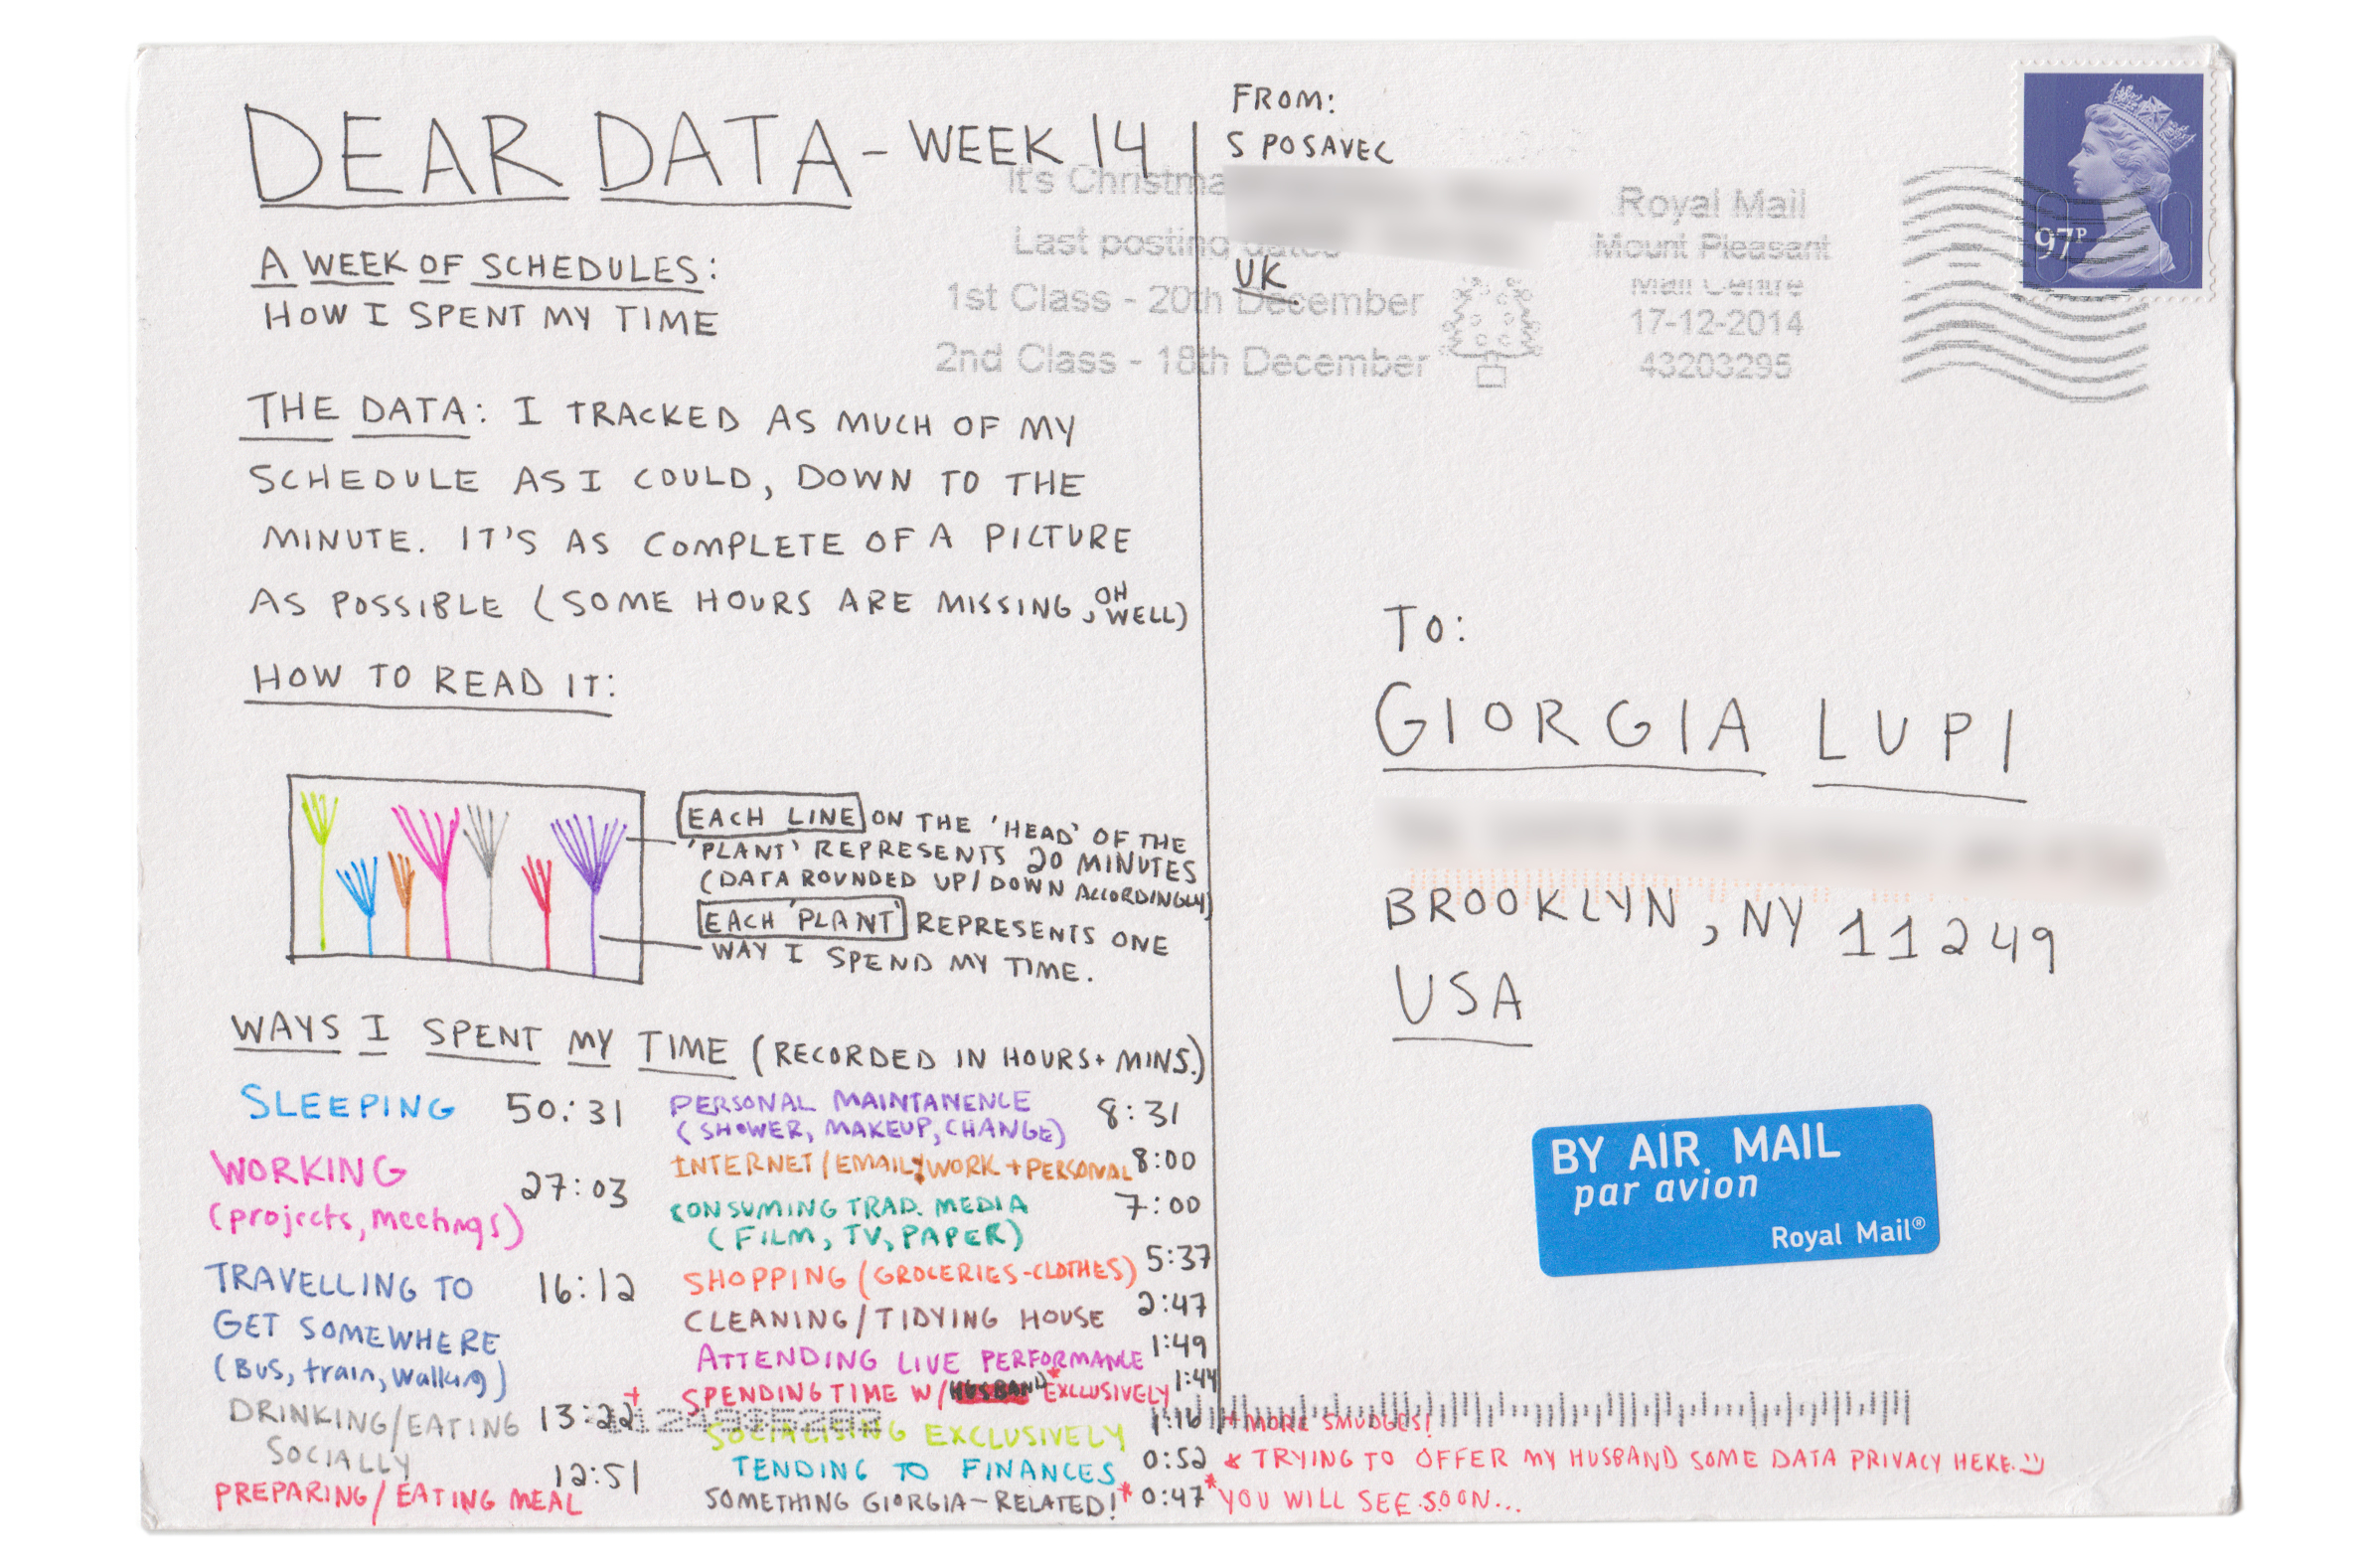 DEAR DATA - WEEK 14
A WEEK OF SCHEDULES:
HOW I SPENT MY TIME
THE DATA: I TRACKED AS MUCH OF MY
SCHEDULE AS I COULD, DOWN TO THE
MINUTE. IT'S AS COMPLETE OF A PICTURE
AS POSSIBLE (SOME HOURS ARE MISSING, OH WELL)
HOW TO READ IT:
EACH LINE ON THE 'HEAD' OF THE
'PLANT' REPRESENTS 20 MINUTES
(DATA ROUNDED UP/DOWN ACCORDINGLY)
EACH 'PLANT' REPRESENTS ONE
WAY I SPEND MY TIME.
WAYS I SPENT MY TIME (RECORDED IN HOURS + MINS.)
SLEEPING 50:31
WORKING
(projects, meetings) 27:03
TRAVELLING TO 16:12
GET SOMEWHERE
(Bus, train, walking)
DRINKING/EATING 13:22+
SOCIALLY
PREPARING/EATING MEAL 12:51
PERSONAL MAINTANENCE 8:31
(SHOWER, MAKEUP, CHANGE)
INTERNET/EMAIL, WORK + PERSONAL 8:00
CONSUMING TRAD. MEDIA 7:00
(FILM, TV, PAPER)
SHOPPING (GROCERIES-CLOTHES) 5:37
CLEANING/TIDYING HOUSE 2:47
ATTENDING LIVE PERFORMANCE 1:49
SPENDING TIME W/HUSBAND* EXCLUSIVELY 1:44
SOCIALISING EXCLUSIVELY 1:16
TENDING TO FINANCES 0:52
SOMETHING GIORGIA-RELATED!* 0:47
+ MORE SMUDGES!
* TRYING TO OFFER MY HUSBAND SOME DATA PRIVACY HERE.
*YOU WILL SEE SOON...
FROM:
S POSAVEC
UK
It's Christma
Last posting dates
1st Class - 20th December
2nd Class - 18th December
Royal Mail
Mount Pleasant
Mail Centre
17-12-2014
43203295
97P
TO:
GIORGIA LUPI
BROOKLYN, NY 11249
USA
BY AIR MAIL
par avion
Royal Mail®